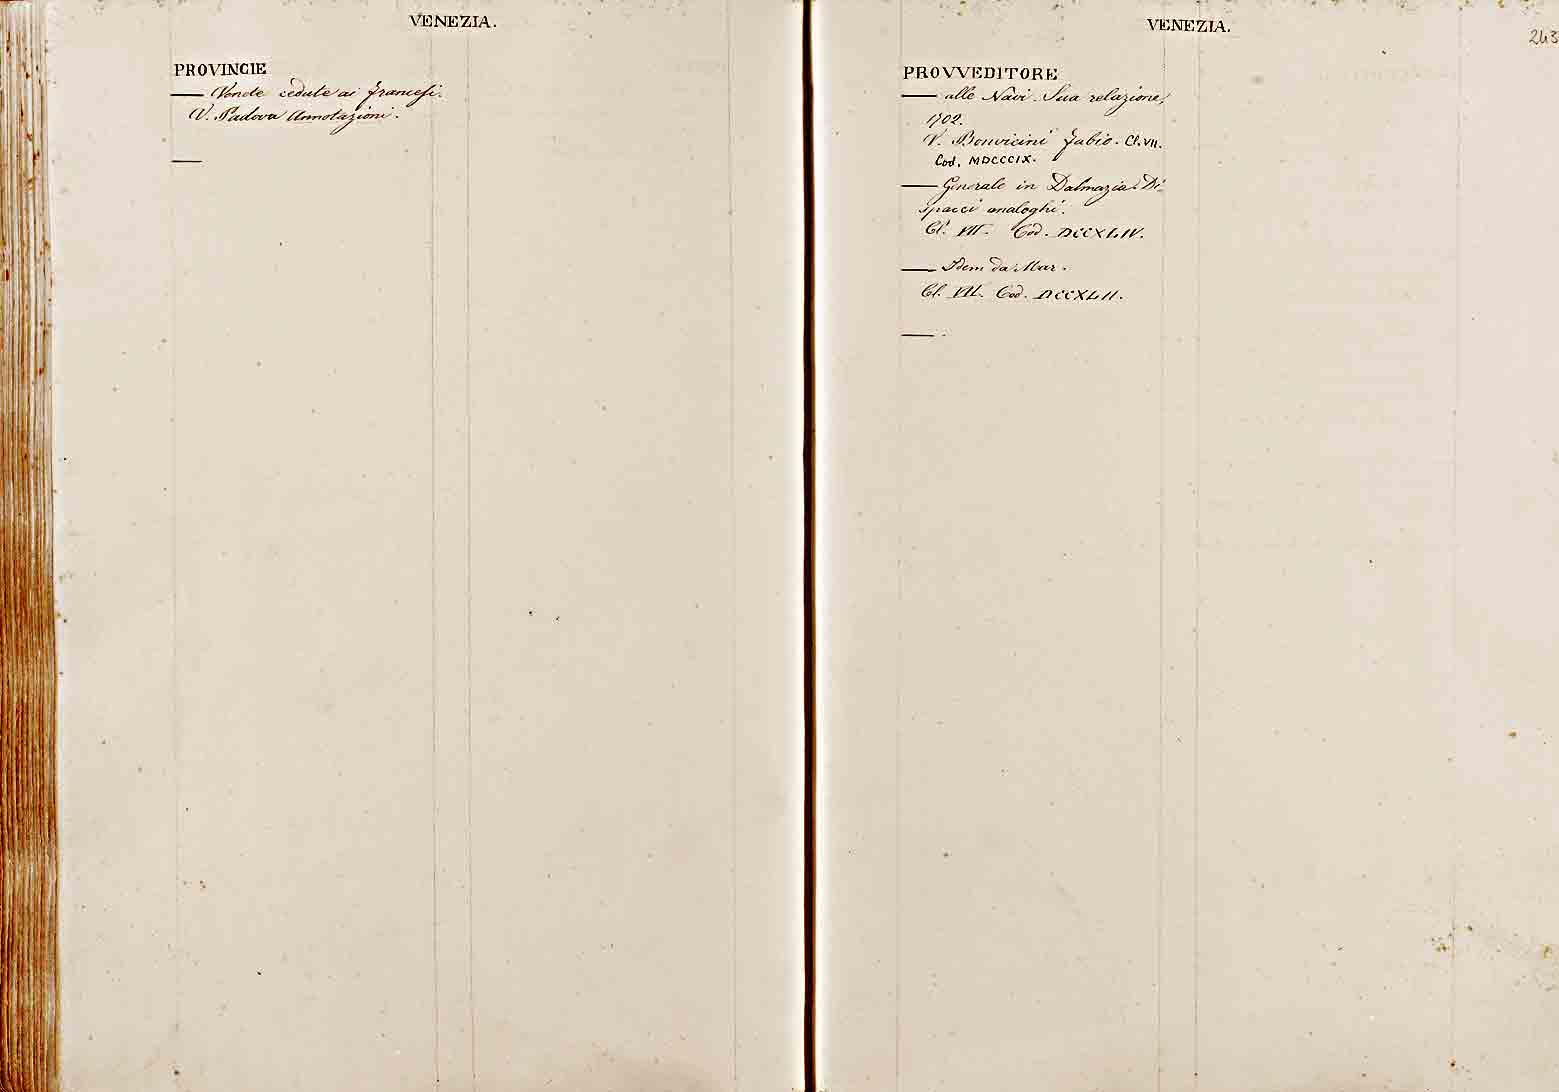 VENEZIA.
PROVINCIE
— Venete cedute ai francesi.
V. Padova Annotazioni.
—
VENEZIA.
243
PROVVEDITORE
— alle Navi. Sua relazione,
1702.
V. Bonvicini Fabio. Cl. VII.
Cod. MDCCCIX.
— Generale in Dalmazia. Di-
spacci analoghi.
Cl. VII. Cod. DCCXLIV.
— Idem da Mar.
Cl. VII. Cod. DCCXLII.
—